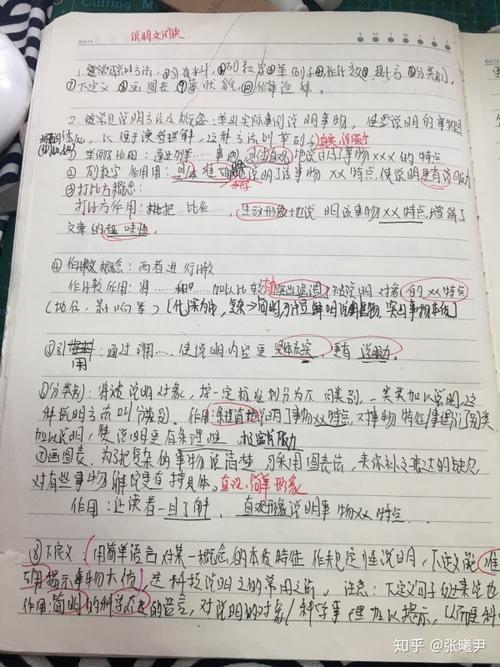 说明文阅读
1.常见说明方法:①引资料 ②列数字 ③举例子 ④作比较 ⑤打比方 ⑥分类别
⑦下定义 ⑧画图表 ⑨摹状貌 ⑩作诠释
2.常见说明方法及概念:举出实际事例说明事物,使要说明的事物
以便于读者理解,这种方法叫举例子
举例子作用:通过列举……事例 地说明了事物XXX的特点
②列数字 作用:具体准确 说明了该事物XX特点,使说明更有说服力
③打比方概念:
打比方作用: 把……比作…… 生动形象地说明该事物XX特点,增强了
文章的趣味性
④作比较概念:两者进行比较
作比较作用:将……和……加以比较 突出强调 被说明对象 的XX特点
(地位、影响等)
⑤引用:通过引用……使说明内容更 具体充实 更有说服力
⑥分类别:将被说明对象,按一定标准划分为不同类别,一类类加以说明,这
种说明方法叫分类别。作用:条理清楚地说明了事物XX特点,对事物特征/事理分门别类
加以说明,使说明更有条理性
⑦画图表:为了把复杂的事物说清楚 可采用图表法,来弥补文字表达的缺欠,
对有些事物解说更直接具体。直观、简单、形象
作用:让读者一目了解 直观形象说明事物XX特点
⑧下定义(用简单语言对某一概念的本质特征作规定性说明,下定义能准
确揭示事物本质)是科技说明文的常用方法 注意:下定义句子
作用:简明 的科学 的语言,对说明的对象/科学事理加以揭示,从而更科
知乎 @张曦尹